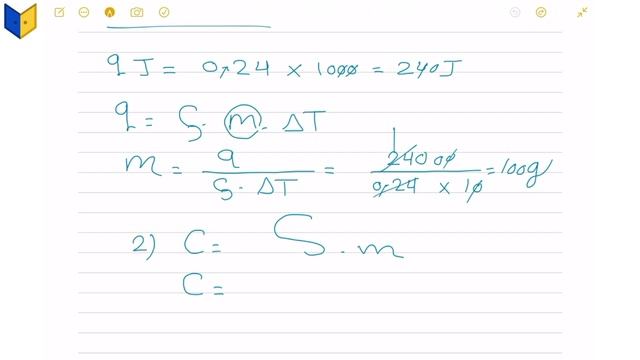 q J = 0,24 × 1000 = 240 J
q = S · m · ΔT
m = q / S · ΔT = 24000 / 0,24 × 10 = 100g
2) C = S · m
C =